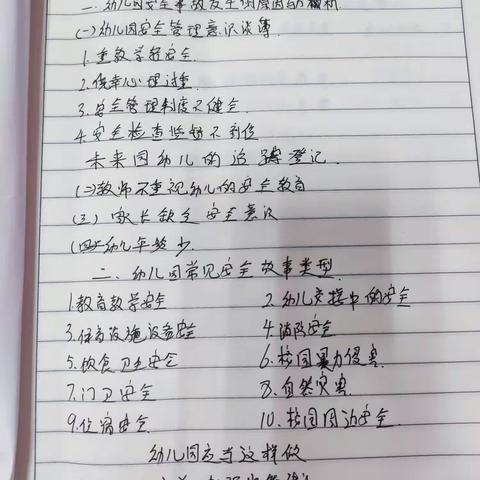 一、幼儿园安全事故发生的原因的剖析
(一)幼儿园安全管理意识淡薄
1.重教学轻安全.
2.侥幸心理过重.
3.安全管理制度不健全.
4.安全检查监督不到位
未来园幼儿的追踪登记.
(二)教师不重视幼儿的安全教育
(三)家长缺乏安全意识
(四)幼儿年龄少.
二、幼儿园常见安全故事类型.
1.教育教学安全 2.幼儿交接中的安全
3.保育设施设备安全 4.消防安全
5.饮食卫生安全 6.校园暴力侵害.
7.门卫安全 8.自然灾害.
9.住宿安全 10.校园周边安全.
幼儿园应当这样做